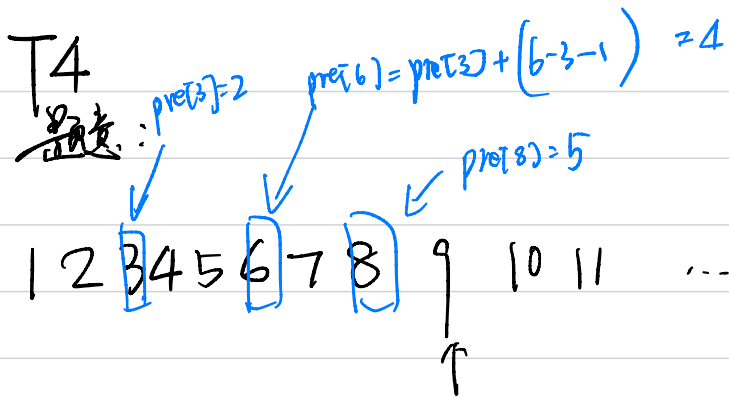 T4
pre[3]=2
pre[6]=pre[3]+(6-3-1) =4
pre[8]=5
1 2 3 4 5 6 7 8 9 10 11 ...